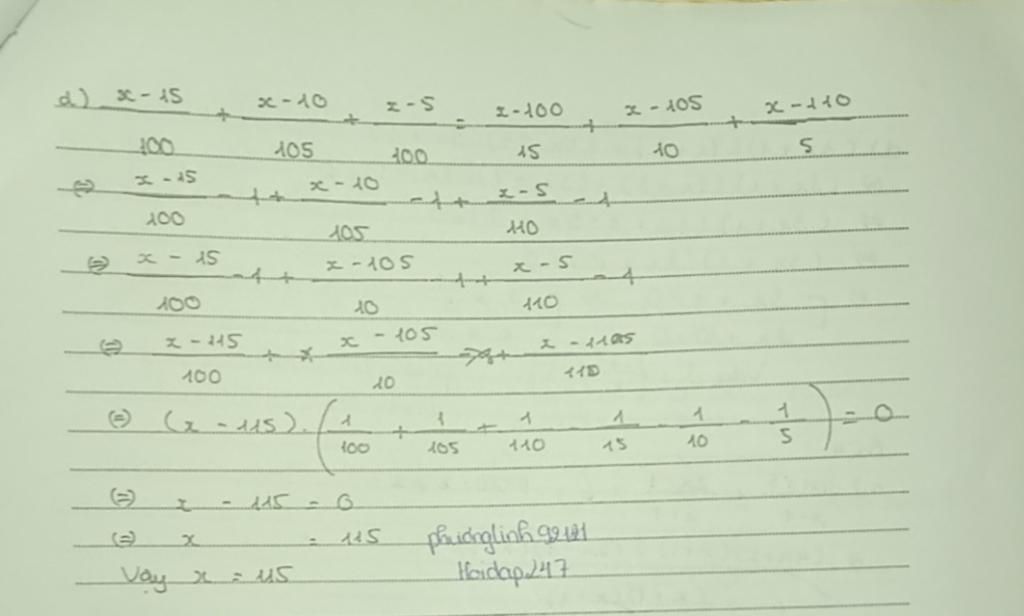 d) x-15/100 + x-10/105 + x-5/100 = x-100/15 + x-105/10 + x-110/5
⇔ x-15/100 - 1 + x-10/105 - 1 + x-5/110 - 1
⇔ x-15/100 - 1 + x-105/10 - 1 + x-5/110 - 1
⇔ x-115/100 + x-105/10 + /110
⇔ (x-115).(1/100 + 1/105 + 1/110 - 1/15 - 1/10 - 1/5) = 0
⇔ x - 115 = 0
⇔ x = 115 phuonglinh92121
Vậy x = 115 Hoidap247